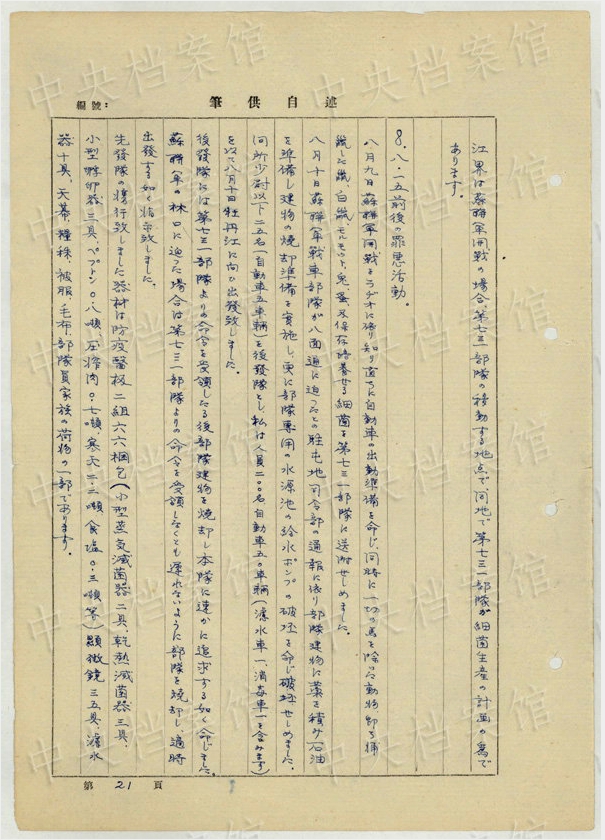 編號：
述自供筆
江界は蘇聯軍開戦の場合、第七三一部隊の移動する地点で、同地で第七三一部隊が細菌生産の計画の為で
あります。
8. 八・一五前後の罪悪活動。
八月九日蘇聯軍開戦をラヂオに依り知り直ちに自動車の出動準備を命じ同時に一切の馬を除いた動物即ち捕
獲した鼠、白鼠、モルモット、兎、蚤及保存培養せる細菌を第七三一部隊に送附せしめました。
八月十日蘇聯軍戦車部隊が八面通に迫ったとの駐屯地司令部の通報に依り部隊建物に藁を積み石油
を準備し建物の焼却準備を実施し、更に部隊専用の水源池の給水ポンプの破壊を命じ破壊せしめました。
同所少尉以下二五名（自動車五車輛）を後發隊とし、私は人員二〇〇名自動車五〇車輛（濾水車一、消毒車一を含みます）
を以て八月十日牡丹江に向ひ出發致しました。
後發隊には第七三一部隊よりの命令を受領したる後部隊建物を焼却し本隊に速かに追求する如く命じました。
蘇聯軍の林口に迫った場合は第七三一部隊よりの命令を受領しなくとも遅れないように部隊を焼却し、適時
出發する如く指示致しました。
先發隊の携行致しました器材は防疫醫极二組六六梱包（小型蒸気滅菌器二具、乾熱滅菌器三具、
小型孵卵器三具ペプトン〇・八噸、圧搾肉〇・七噸、寒天二・二噸食塩〇・三噸等）顕微鏡三五具濾水
器十具、天幕、糧秣、被服、毛布、部隊員家族の荷物の一部であります。
第 21 頁
中央档案馆
中央档案馆
中央档案馆
中央档案馆
中央档案馆
中央档案馆
中央档案馆
中央档案馆